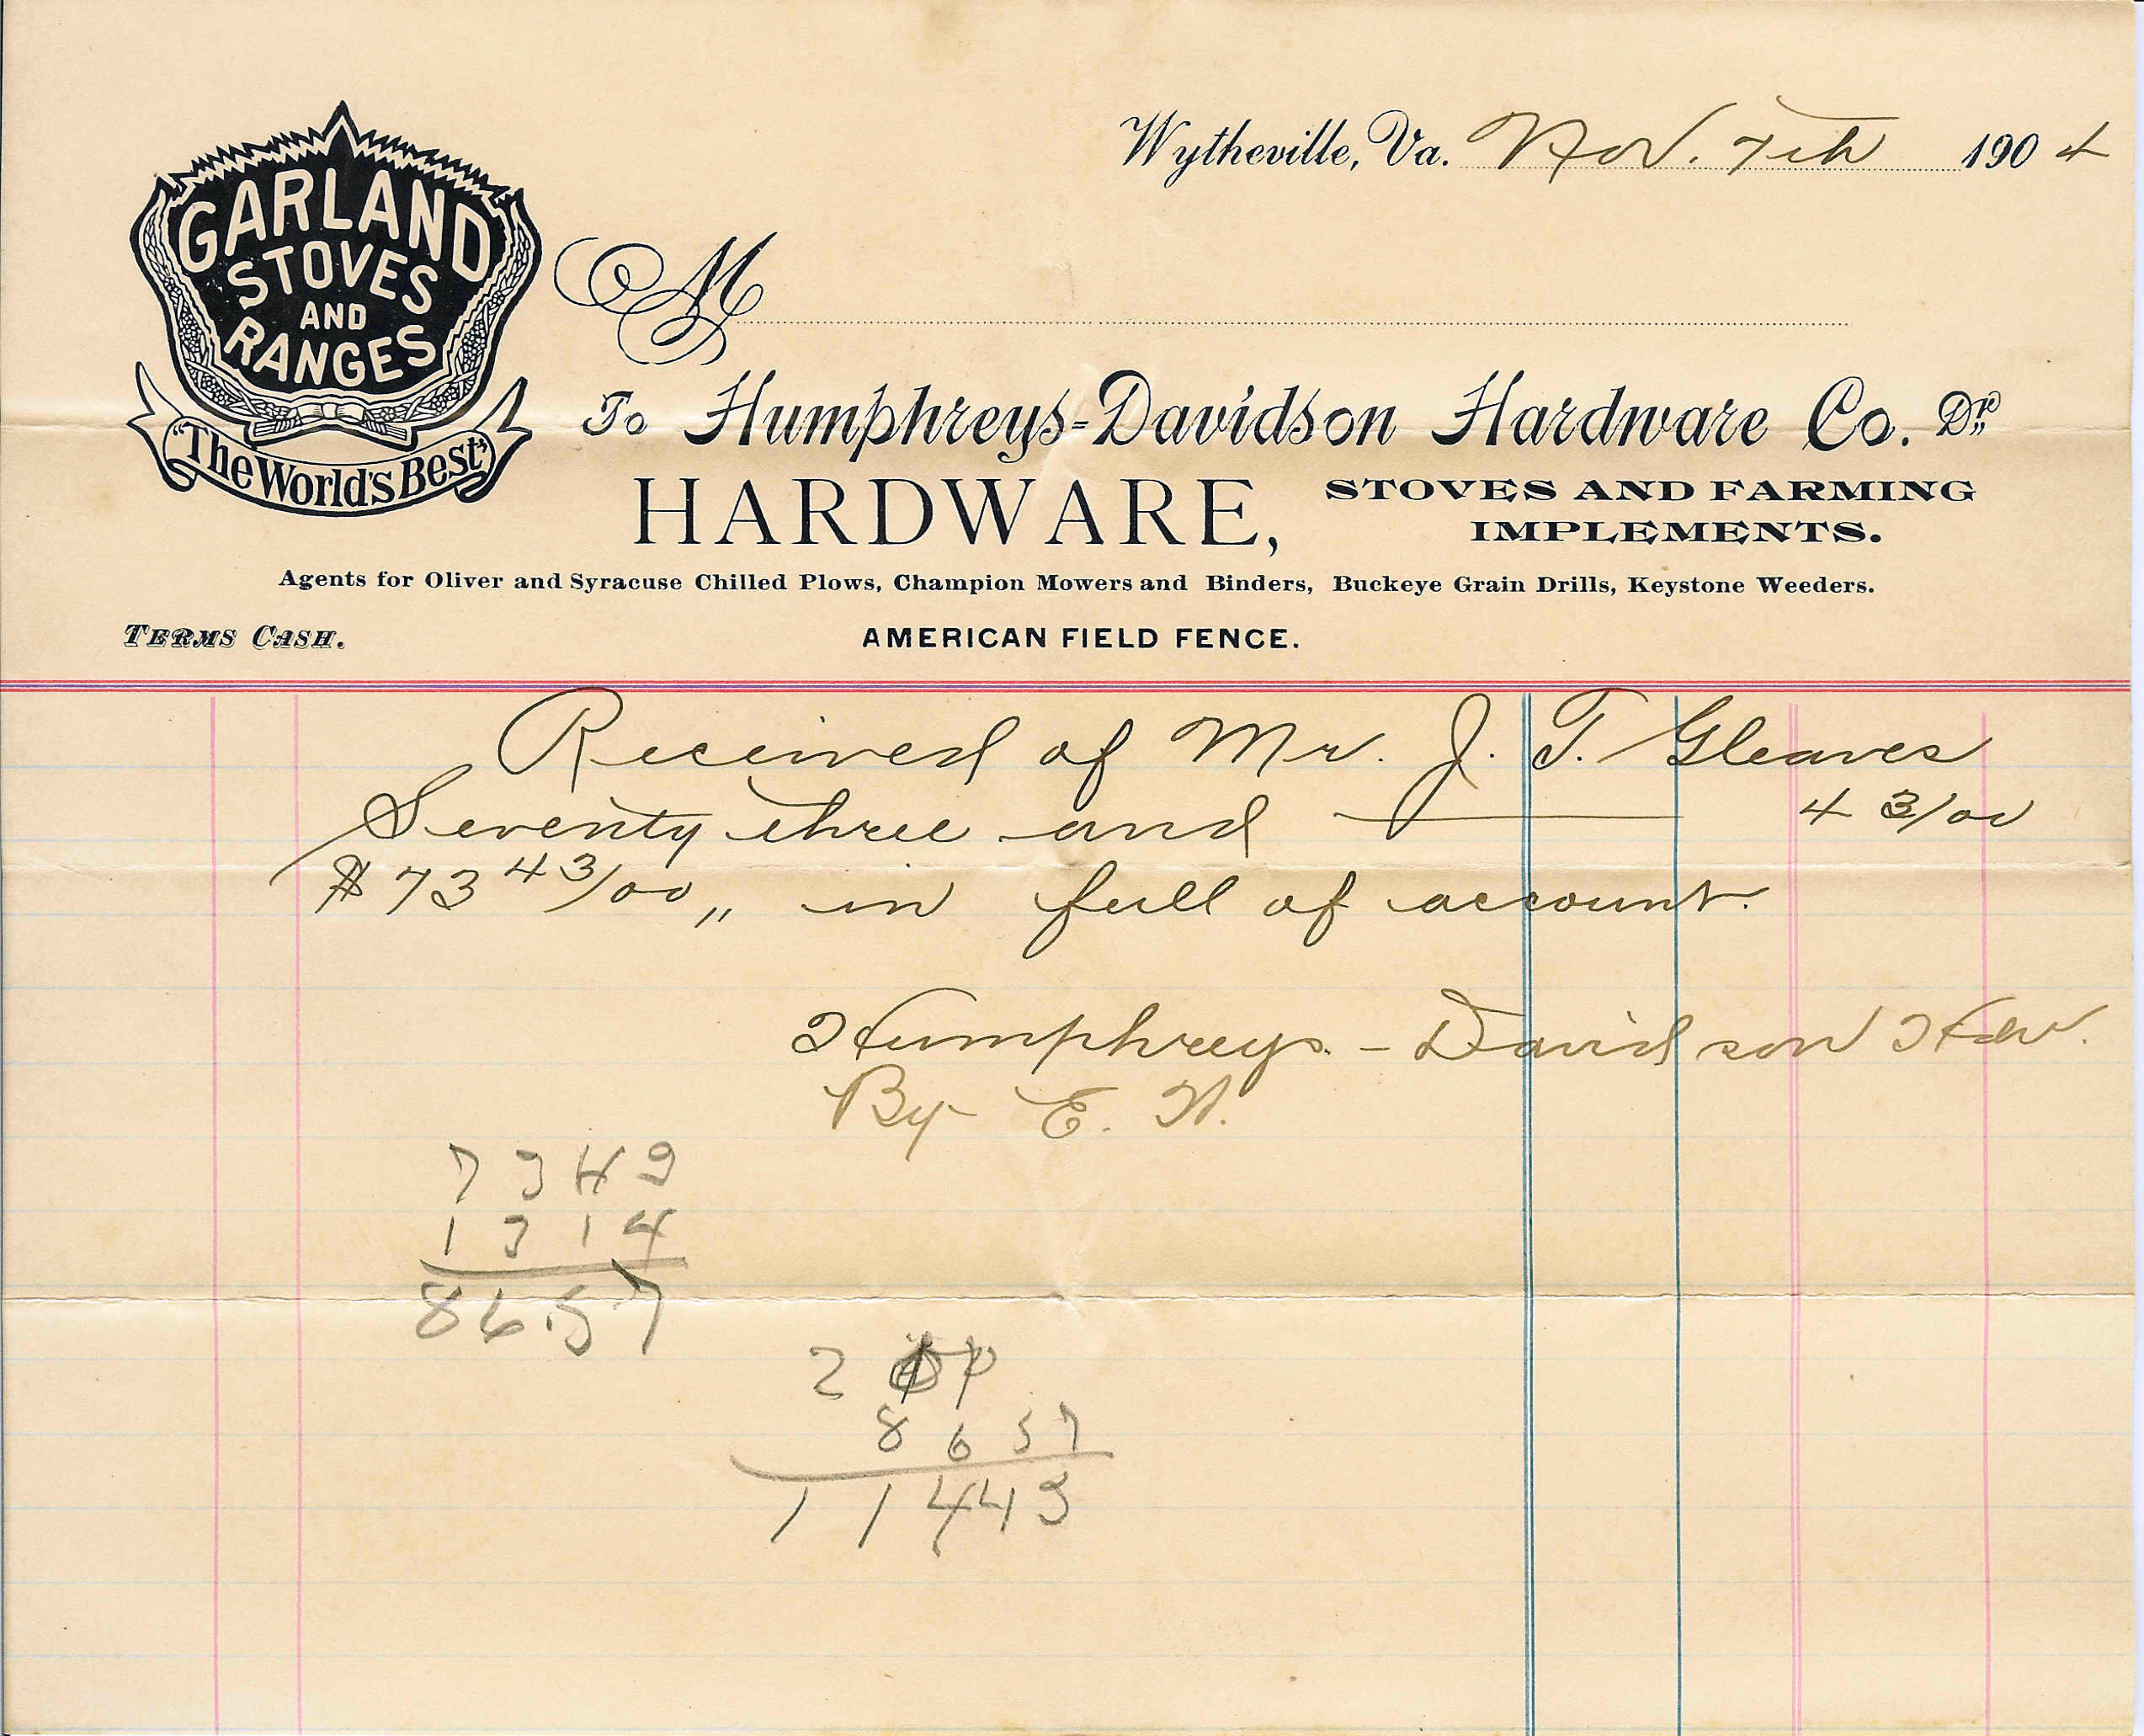 GARLAND
STOVES
AND
RANGES
"The World's Best"
Wytheville, Va. Nov. 7th 1904
M
To Humphreys-Davidson Hardware Co. Dr.
HARDWARE, STOVES AND FARMING
IMPLEMENTS.
Agents for Oliver and Syracuse Chilled Plows, Champion Mowers and Binders, Buckeye Grain Drills, Keystone Weeders.
TERMS CASH. AMERICAN FIELD FENCE.
Received of Mr. J. T. Gleaves
Seventy three and — 43/00
$73 43/00 „ in full of account.
Humphreys - Davidson Hdw.
By E. H.
7343
1314
86.57
2
8657
11443